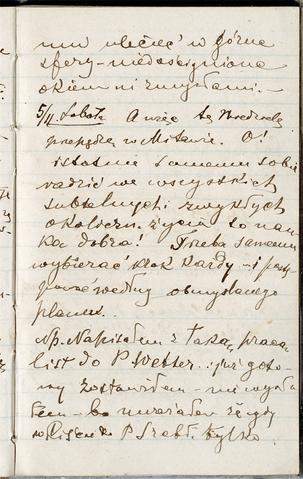 mu ulecieć w górne
sfery – niedoścignione
okiem ni zmysłami. –
5/II. Sobota A więc tę Niedzielę
przepędzę w Mitawie. O!
istotnie samemu sobie
radzić we wszystkich
subtelnych i zwykłych
okoliczn. życia to nau-
ka dobra! Trzeba samemu
wybierać krok każdy – i postę-
pować według obmyślanego
planu.
Np. Napisałem z taką pracą
list do P. Wetter. już goto-
wy zostawiłem – nie wysła-
łem – bo uważałem że gdy
P. tylko